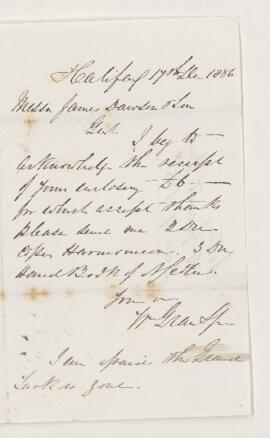 Halifax 17th Dec 1836
Messrs James Dawson & Son
Gent
I beg to
acknowledge the receipt
of your enclosing £6 —
for which accept thanks
Please send me 2 Doz
Copies Harmonicon. 3 Doz
Hand Book of
Your
Wm Grant
I am afraid the
is gone.